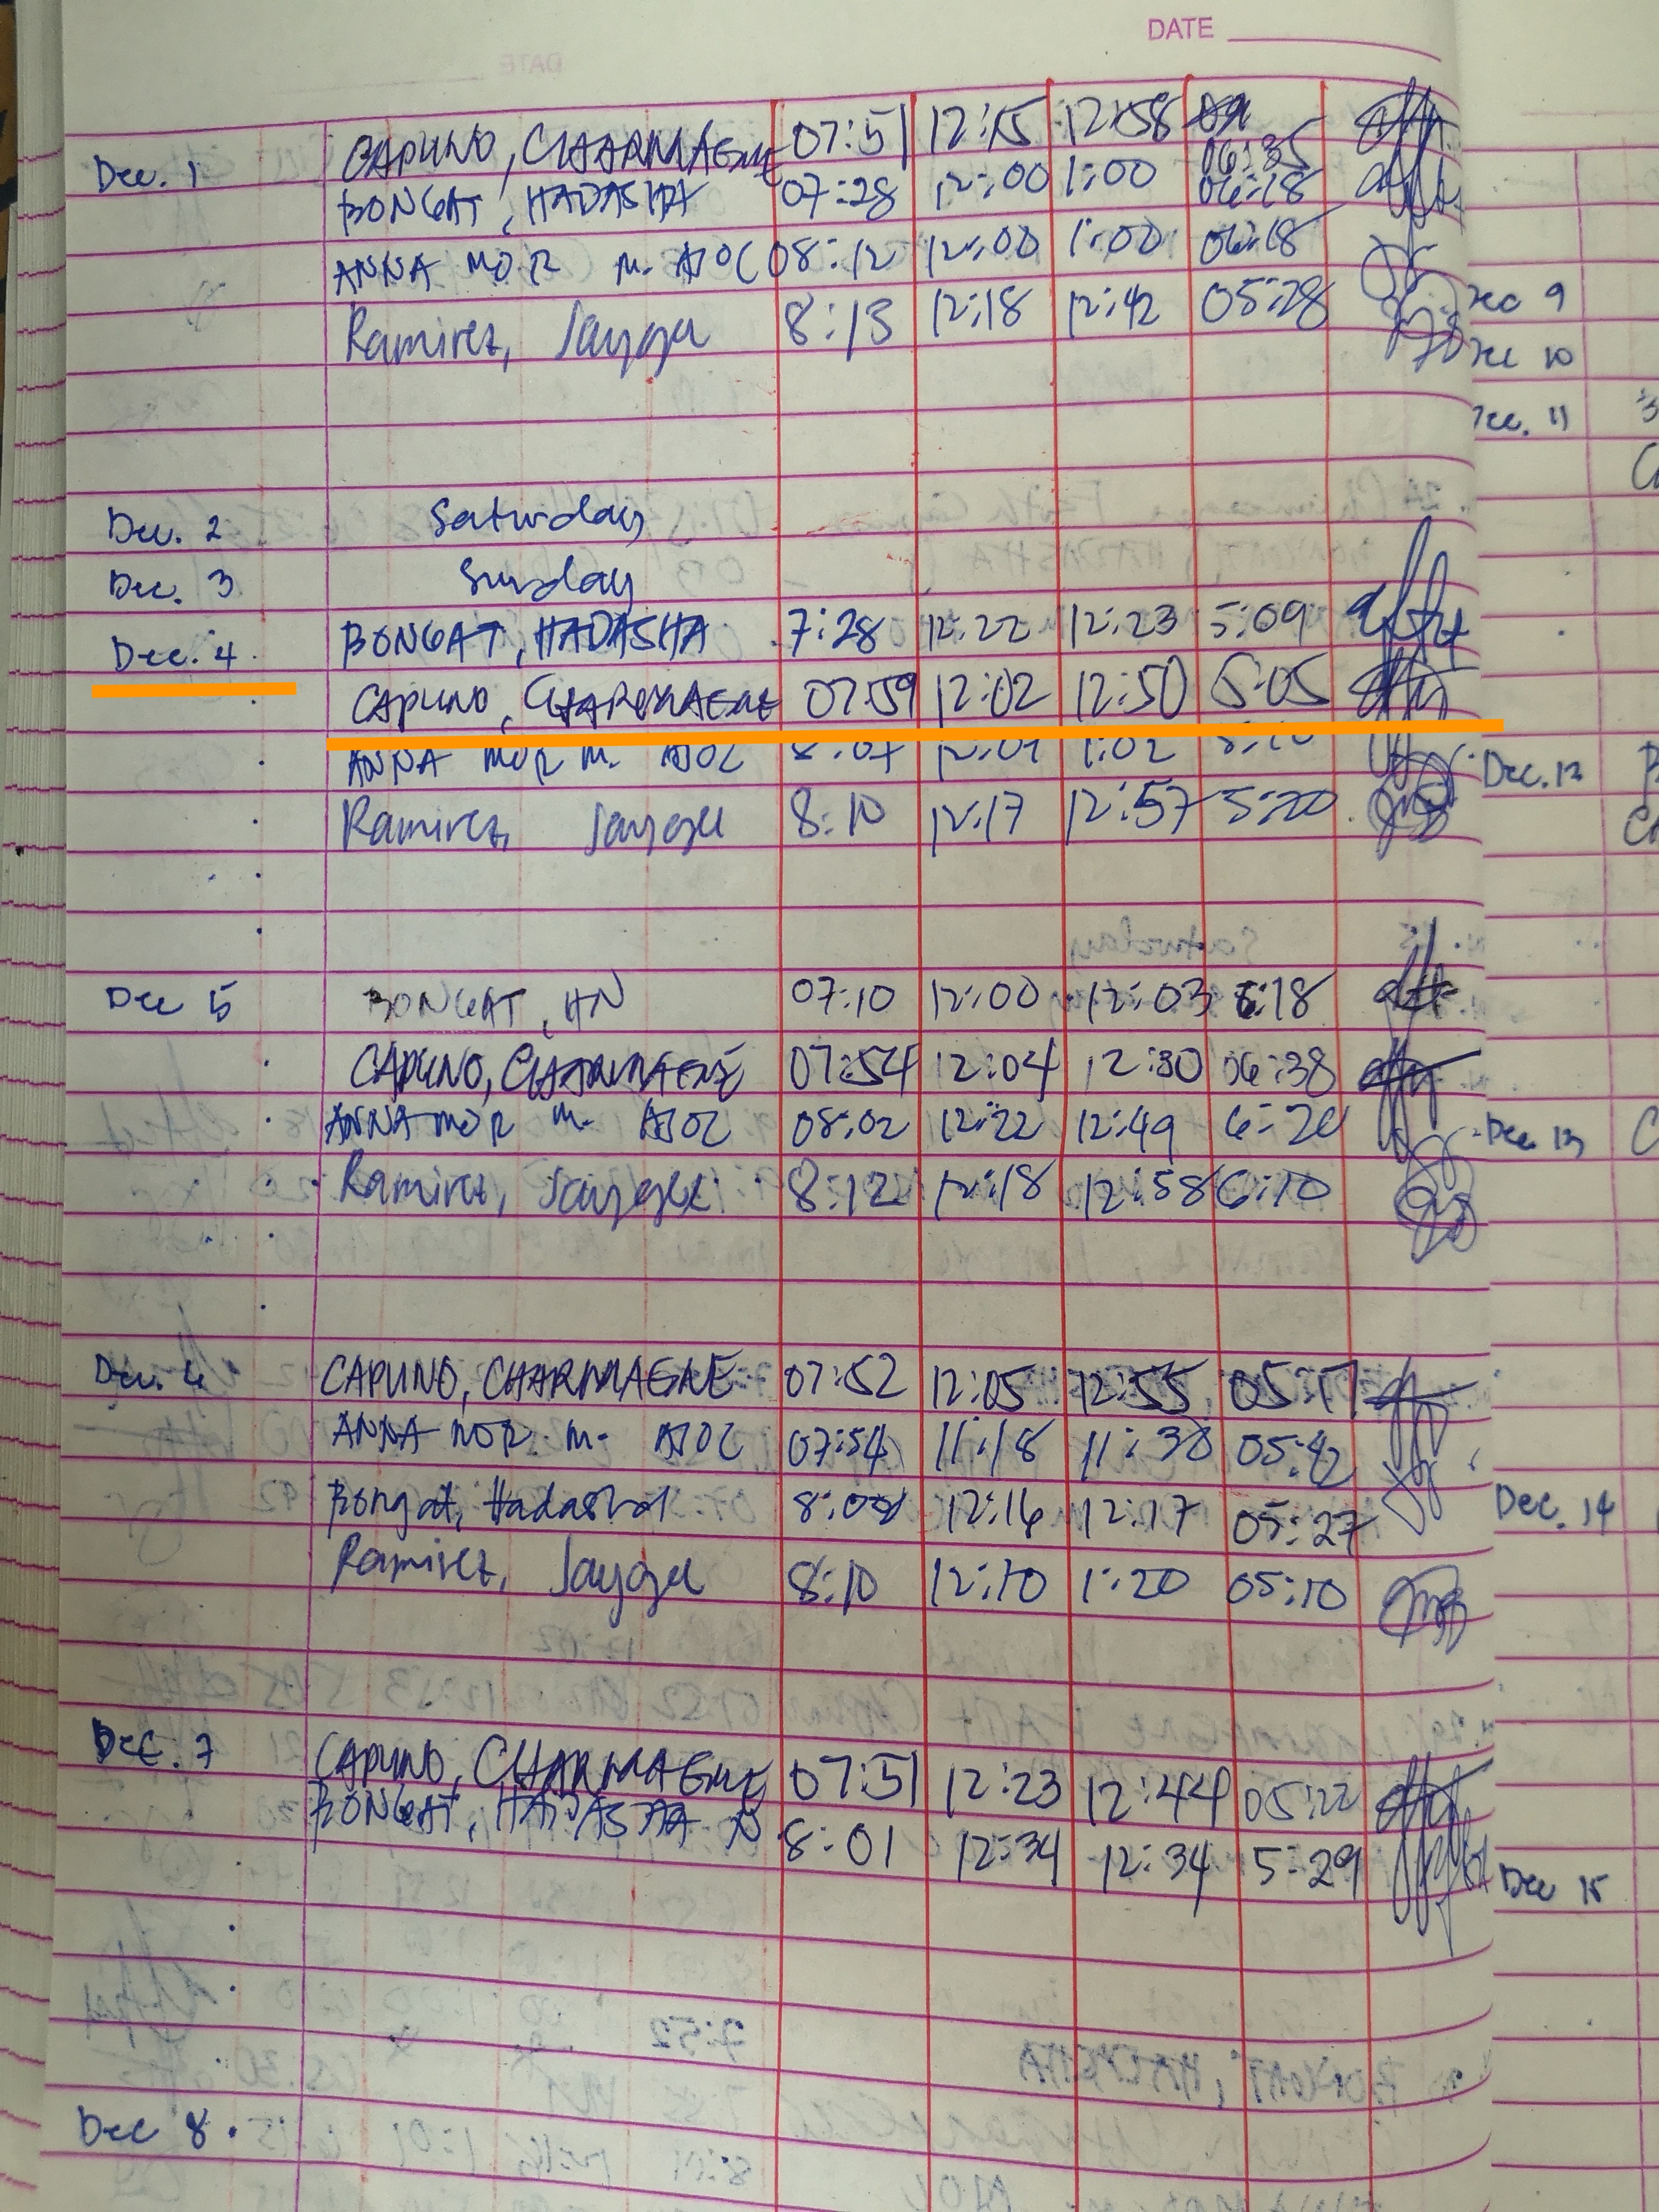 DATE
Dec. 1 CAPUNO, CHARMAGNE 07:51 12:15 12:58 06:35
BONGAT, HADASHA 07:28 12:00 1:00 06:18
ANNA MOR M. AJOC 08:12 12:00 1:00 06:18
Ramirez, Jaygee 8:13 12:18 12:42 05:28
Dec 9
Dec 10
Dec. 11
Dec. 2 Saturday
Dec. 3 Sunday
Dec. 4 BONGAT, HADASHA 7:28 12:22 12:23 5:09
CAPUNO, CHARMAGNE 07:59 12:02 12:50 5:05
ANNA MOR M. AJOC 1:02
Dec. 12
Ramirez, Jaygee 8:10 12:17 12:57 5:20
Dec 5 BONGAT, HN 07:10 12:00 12:03 6:18
CAPUNO, CHARMAGNE 07:54 12:04 12:30 06:38
ANNA MOR M. AJOC 08:02 12:22 12:49 6:20
Dec 13
Ramirez, Jaygee 8:12 12:18 12:58 6:10
Dec. 6 CAPUNO, CHARMAGNE 07:52 12:05 12:55 05:17
ANNA MOR M. AJOC 07:54 11:18 11:30 05:42
Bongat, Hadasha 8:00 12:16 12:17 05:27
Dec. 14
Ramirez, Jaygee 8:10 12:10 1:20 05:10
Dec. 7 CAPUNO, CHARMAGNE 07:51 12:23 12:44 05:22
BONGAT, HADASHA N 8:01 12:34 12:34 5:29
Dec 15
Dec 8